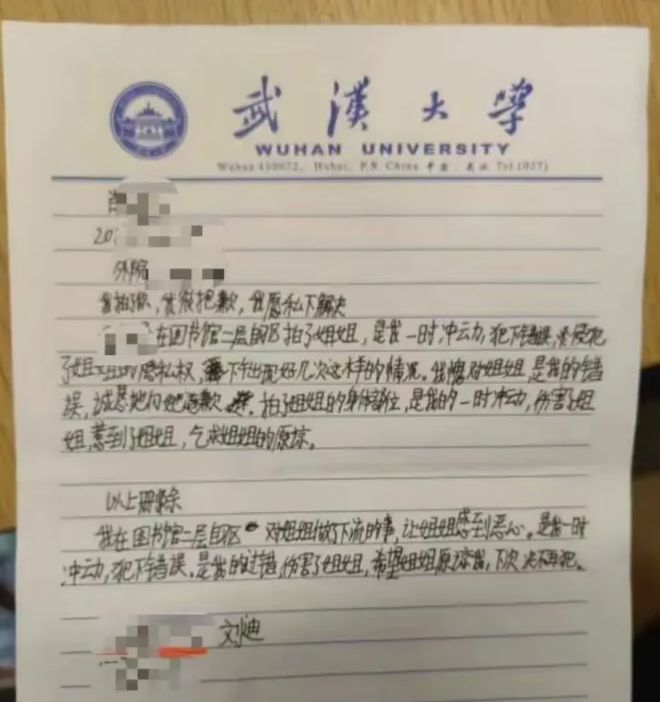 武漢大學
WUHAN UNIVERSITY
Wuhan 430072, Hubei, P.R. China 中国·武汉 Tel.(027)
肖
20
外院
我拍了你，我很抱歉，我愿私下解决
在图书馆二层自习区拍了姐姐，是我一时冲动，犯下错误，侵犯
了姐姐的隐私权，下午出现好几次这样的情况。我愧对姐姐，是我的错
误，诚恳地向她道歉。拍了姐姐的身体部位，是我的一时冲动，伤害了姐
姐，惹到了姐姐，乞求姐姐的原谅。
以上删除
我在图书馆二层自区 对姐姐做了下流的事，让姐姐感到恶心。是我一时
冲动，犯下错误。是我的过错，伤害了姐姐，希望姐姐原谅我，下次决不再犯。